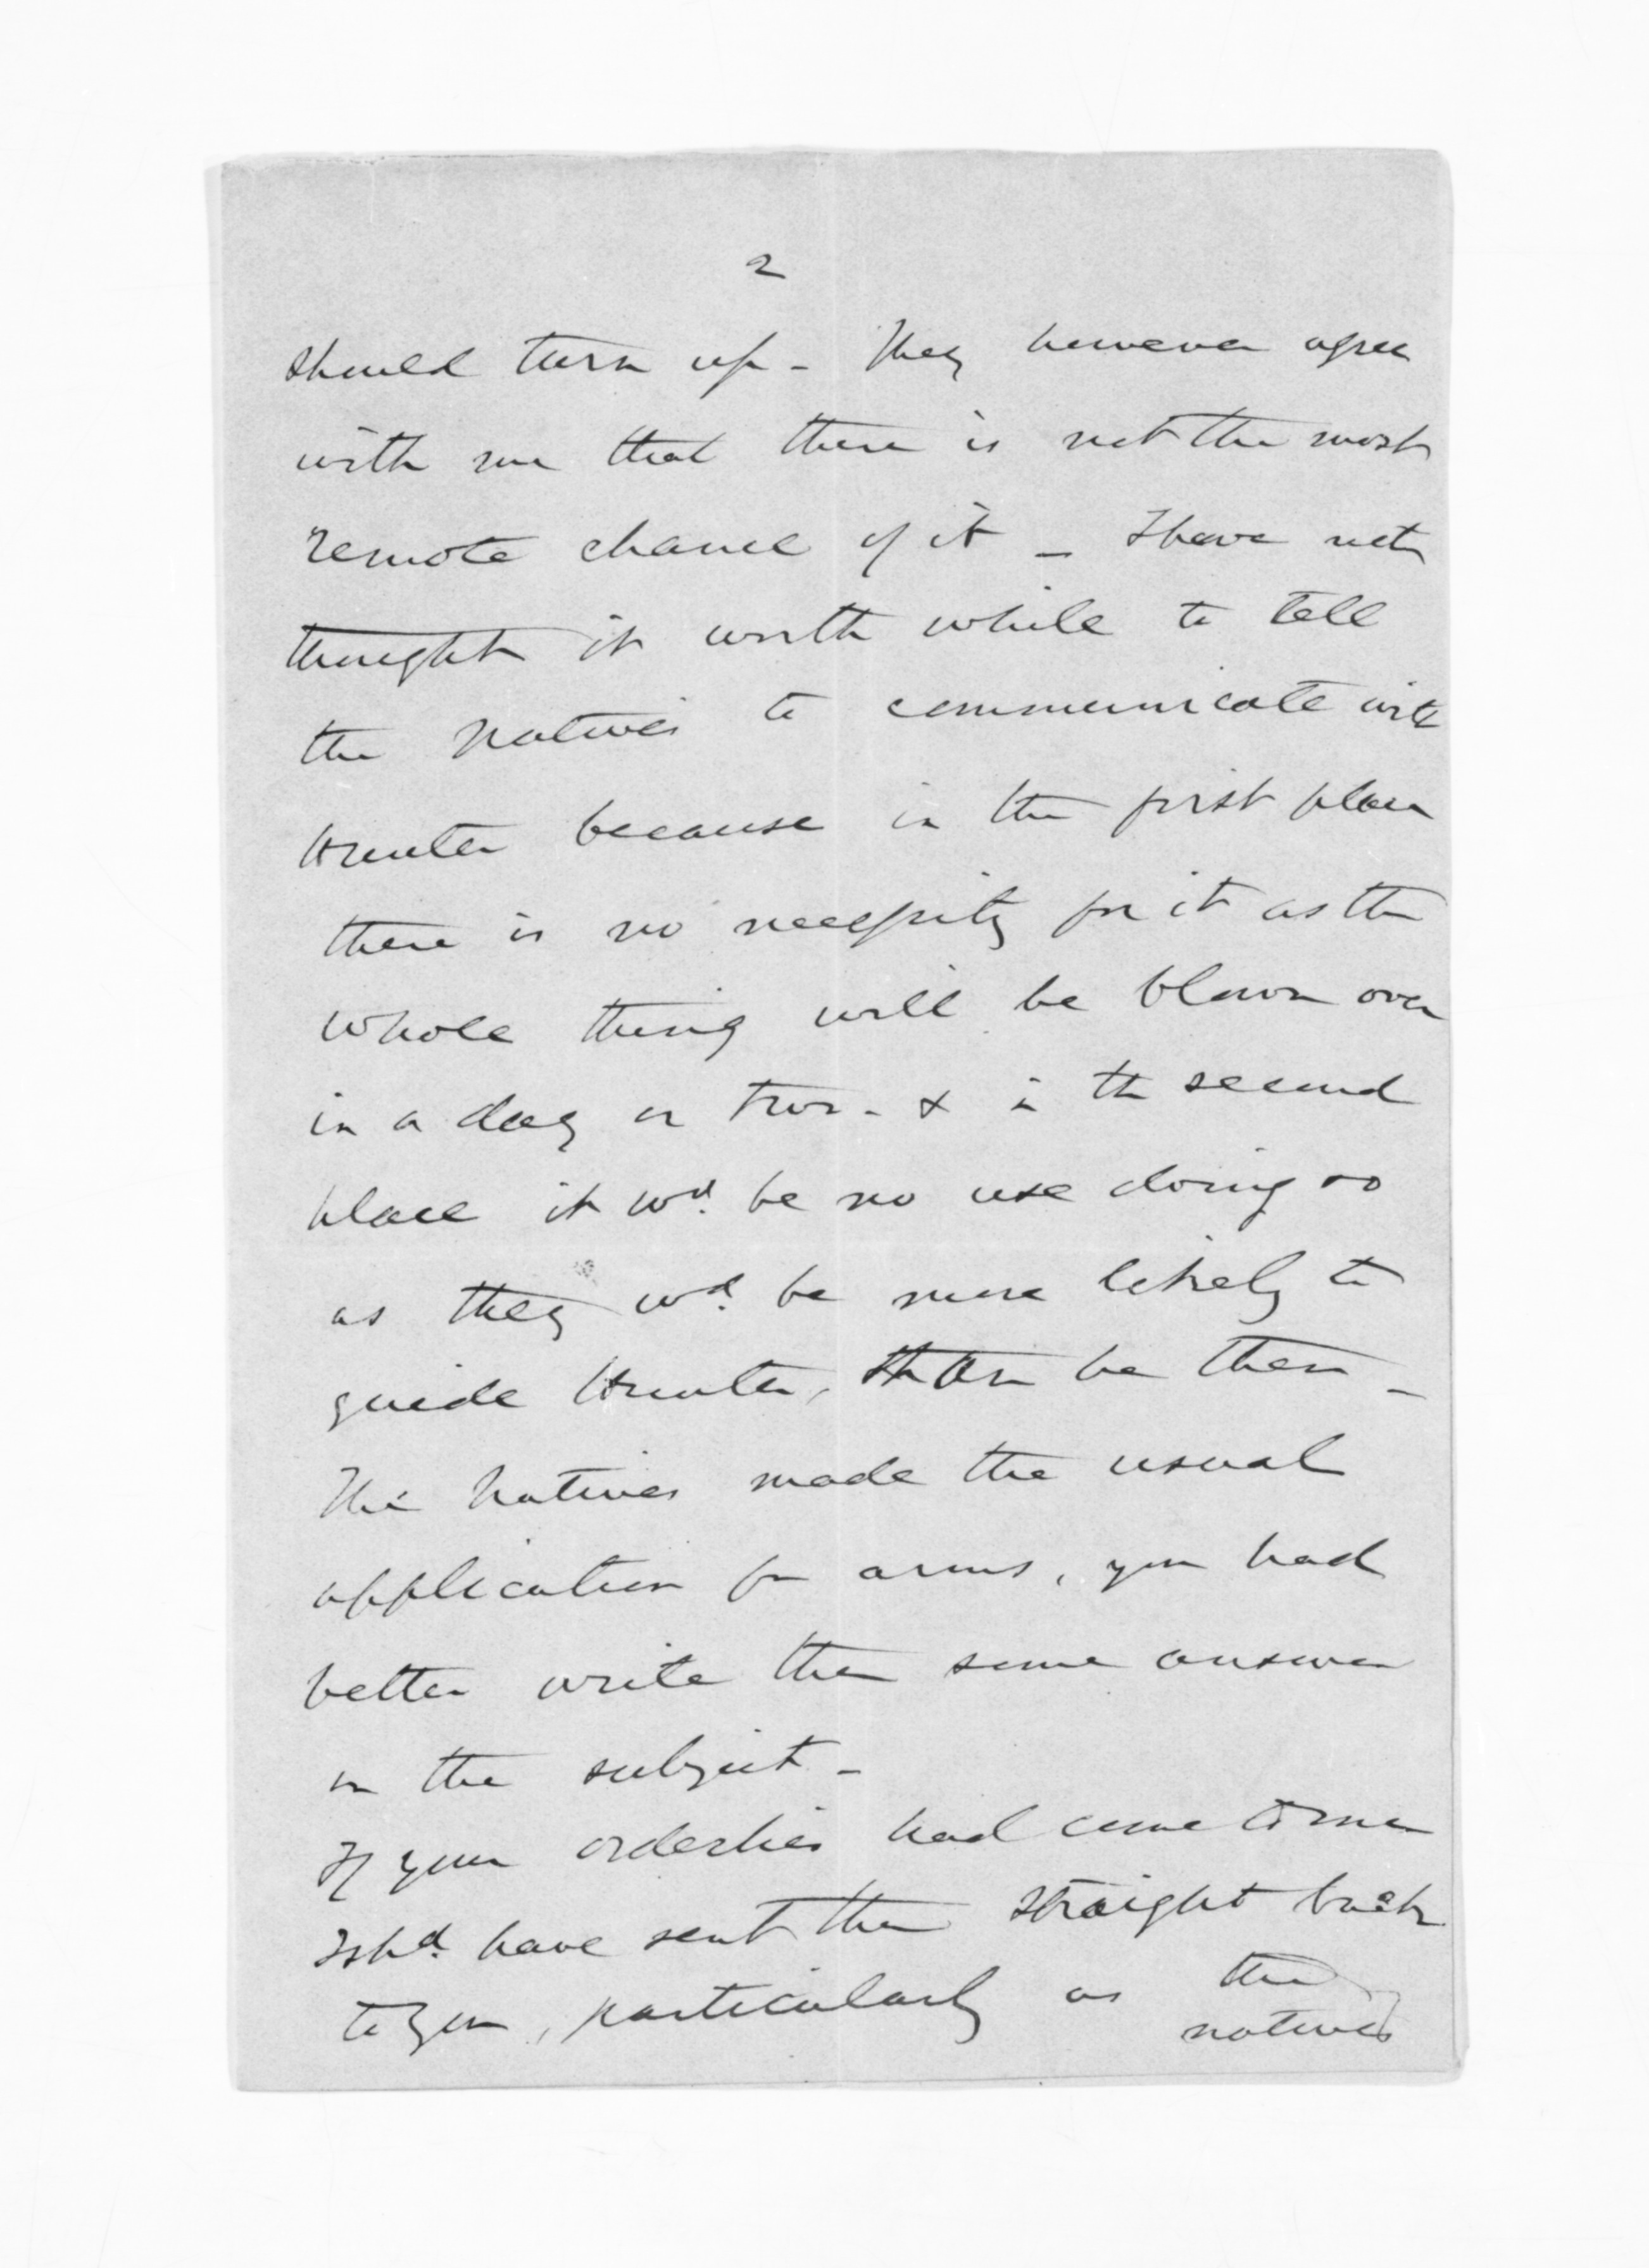 2
should turn up - They however agree
with me that there is not the most
remote chance of it - I have not
thought it worth while to tell
the Natives to communicate with
Hunter because in the first place
there is no necessity for it as the
whole thing will be blown over
in a day or two - & in the second
place it wd. be no use doing so
as they wd. be more likely to
guide Hunter, than he them -
The Natives made the usual
application for arms, you had
better write them some answer
on the subject -
If your orderlies had come to me
I shd. have sent them straight back
to you, particularly as the
natives